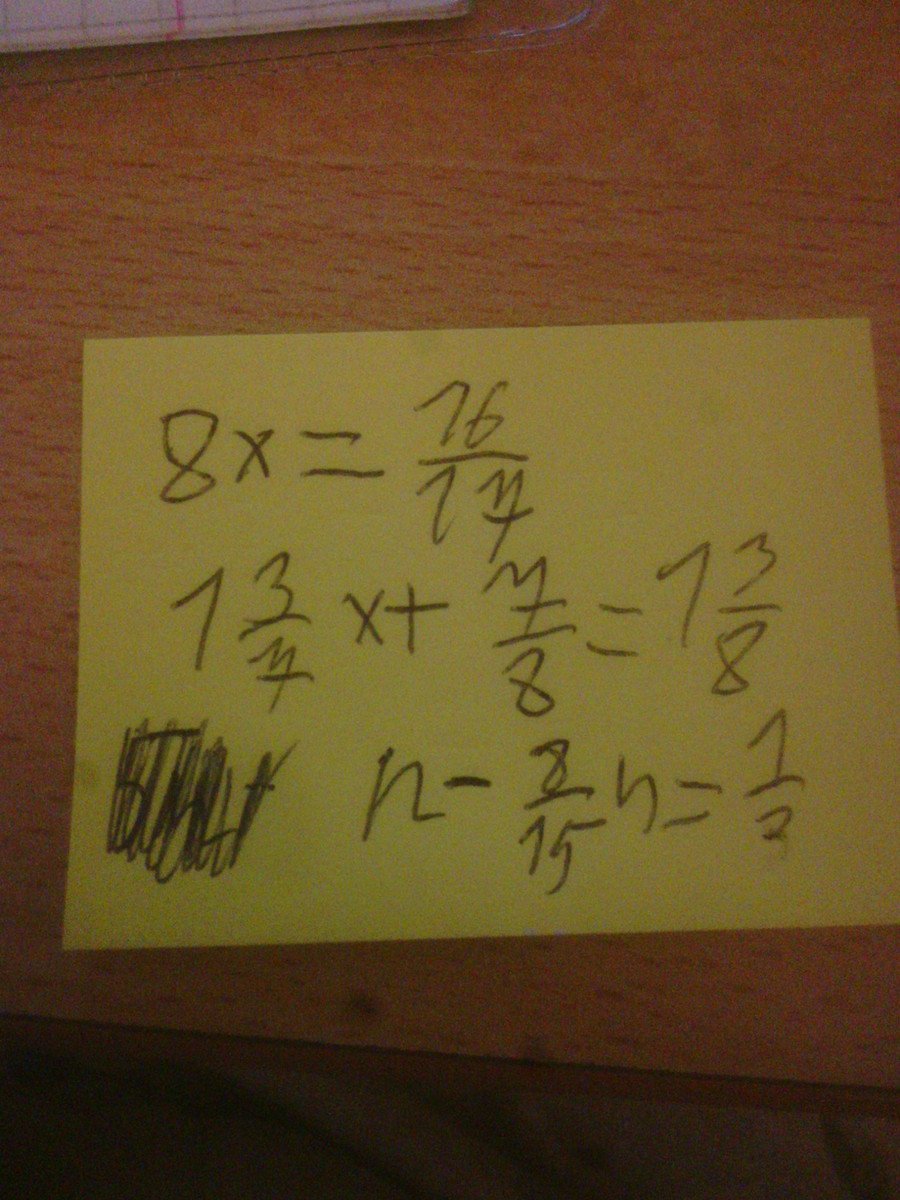 8x = 16/17
1 3/7 x + 7/8 = 1 3/8
n - 8/15 n = 1/2